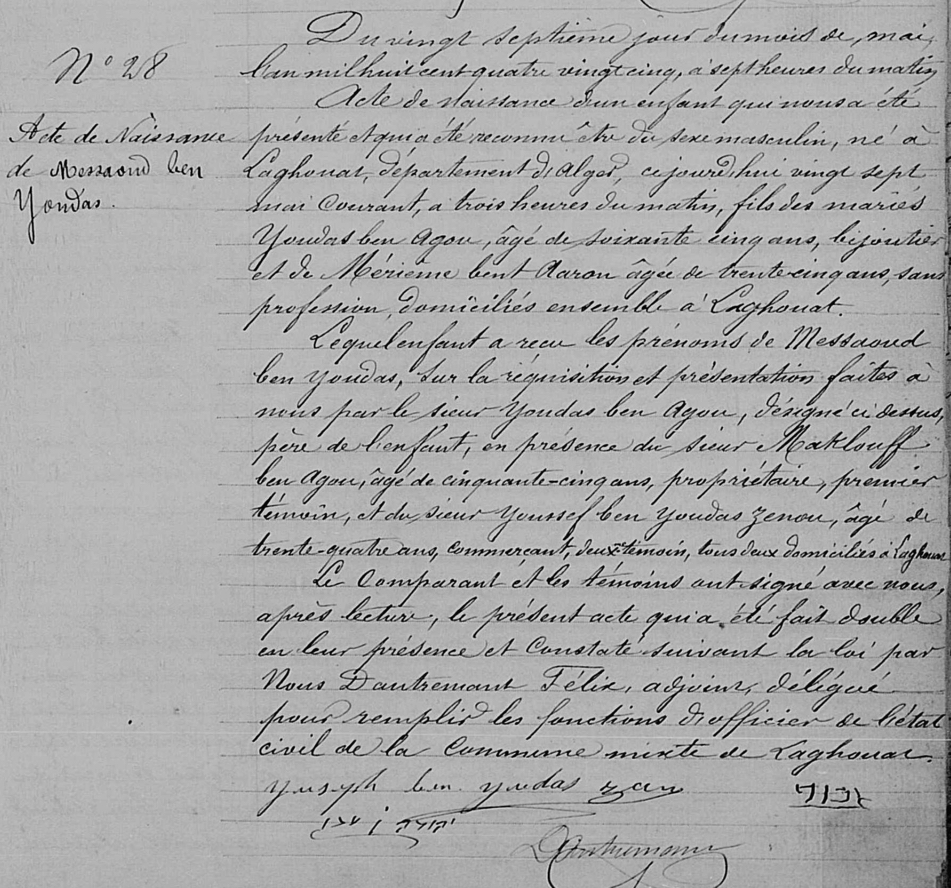 N° 28
Acte de Naissance
de Messaoud ben
Youdas.
Du vingt septième jour du mois de mai,
l'an mil huit cent quatre vingt cinq, à sept heures du matin
Acte de naissance d'un enfant qui nous a été
présenté et qui a été reconnu être du sexe masculin, né à
Laghouat, département d'Alger, cejourd'hui vingt sept
mai courant, à trois heures du matin, fils des mariés
Youdas ben Agou, âgé de soixante cinq ans, bijoutier
et de Mérième bent Aaron âgée de trente-cinq ans, sans
profession, domiciliés ensemble à Laghouat.
Lequel enfant a recu les prénoms de Messaoud
ben Youdas, sur la réquisition et présentation faites à
nous par le sieur Youdas ben Agou, désigné ci dessus,
père de l'enfant, en présence du sieur Maklouff
ben Agou, âgé de cinquante-cinq ans, propriétaire, premier
témoin, et du sieur Youssef ben Youdas Zenou, âgé de
trente-quatre ans, commerçant, deuxe témoin, tous deux domiciliés à Laghouat
Le Comparant et les témoins ont signé avec nous,
après lecture, le présent acte qui a été fait double
en leur présence et constaté suivant la loi par
Nous Dautremant Félix, adjoint, délégué
pour remplir les fonctions d'officier de l'état
civil de la Commune mixte de Laghouat.
yusyh ben youdas zan